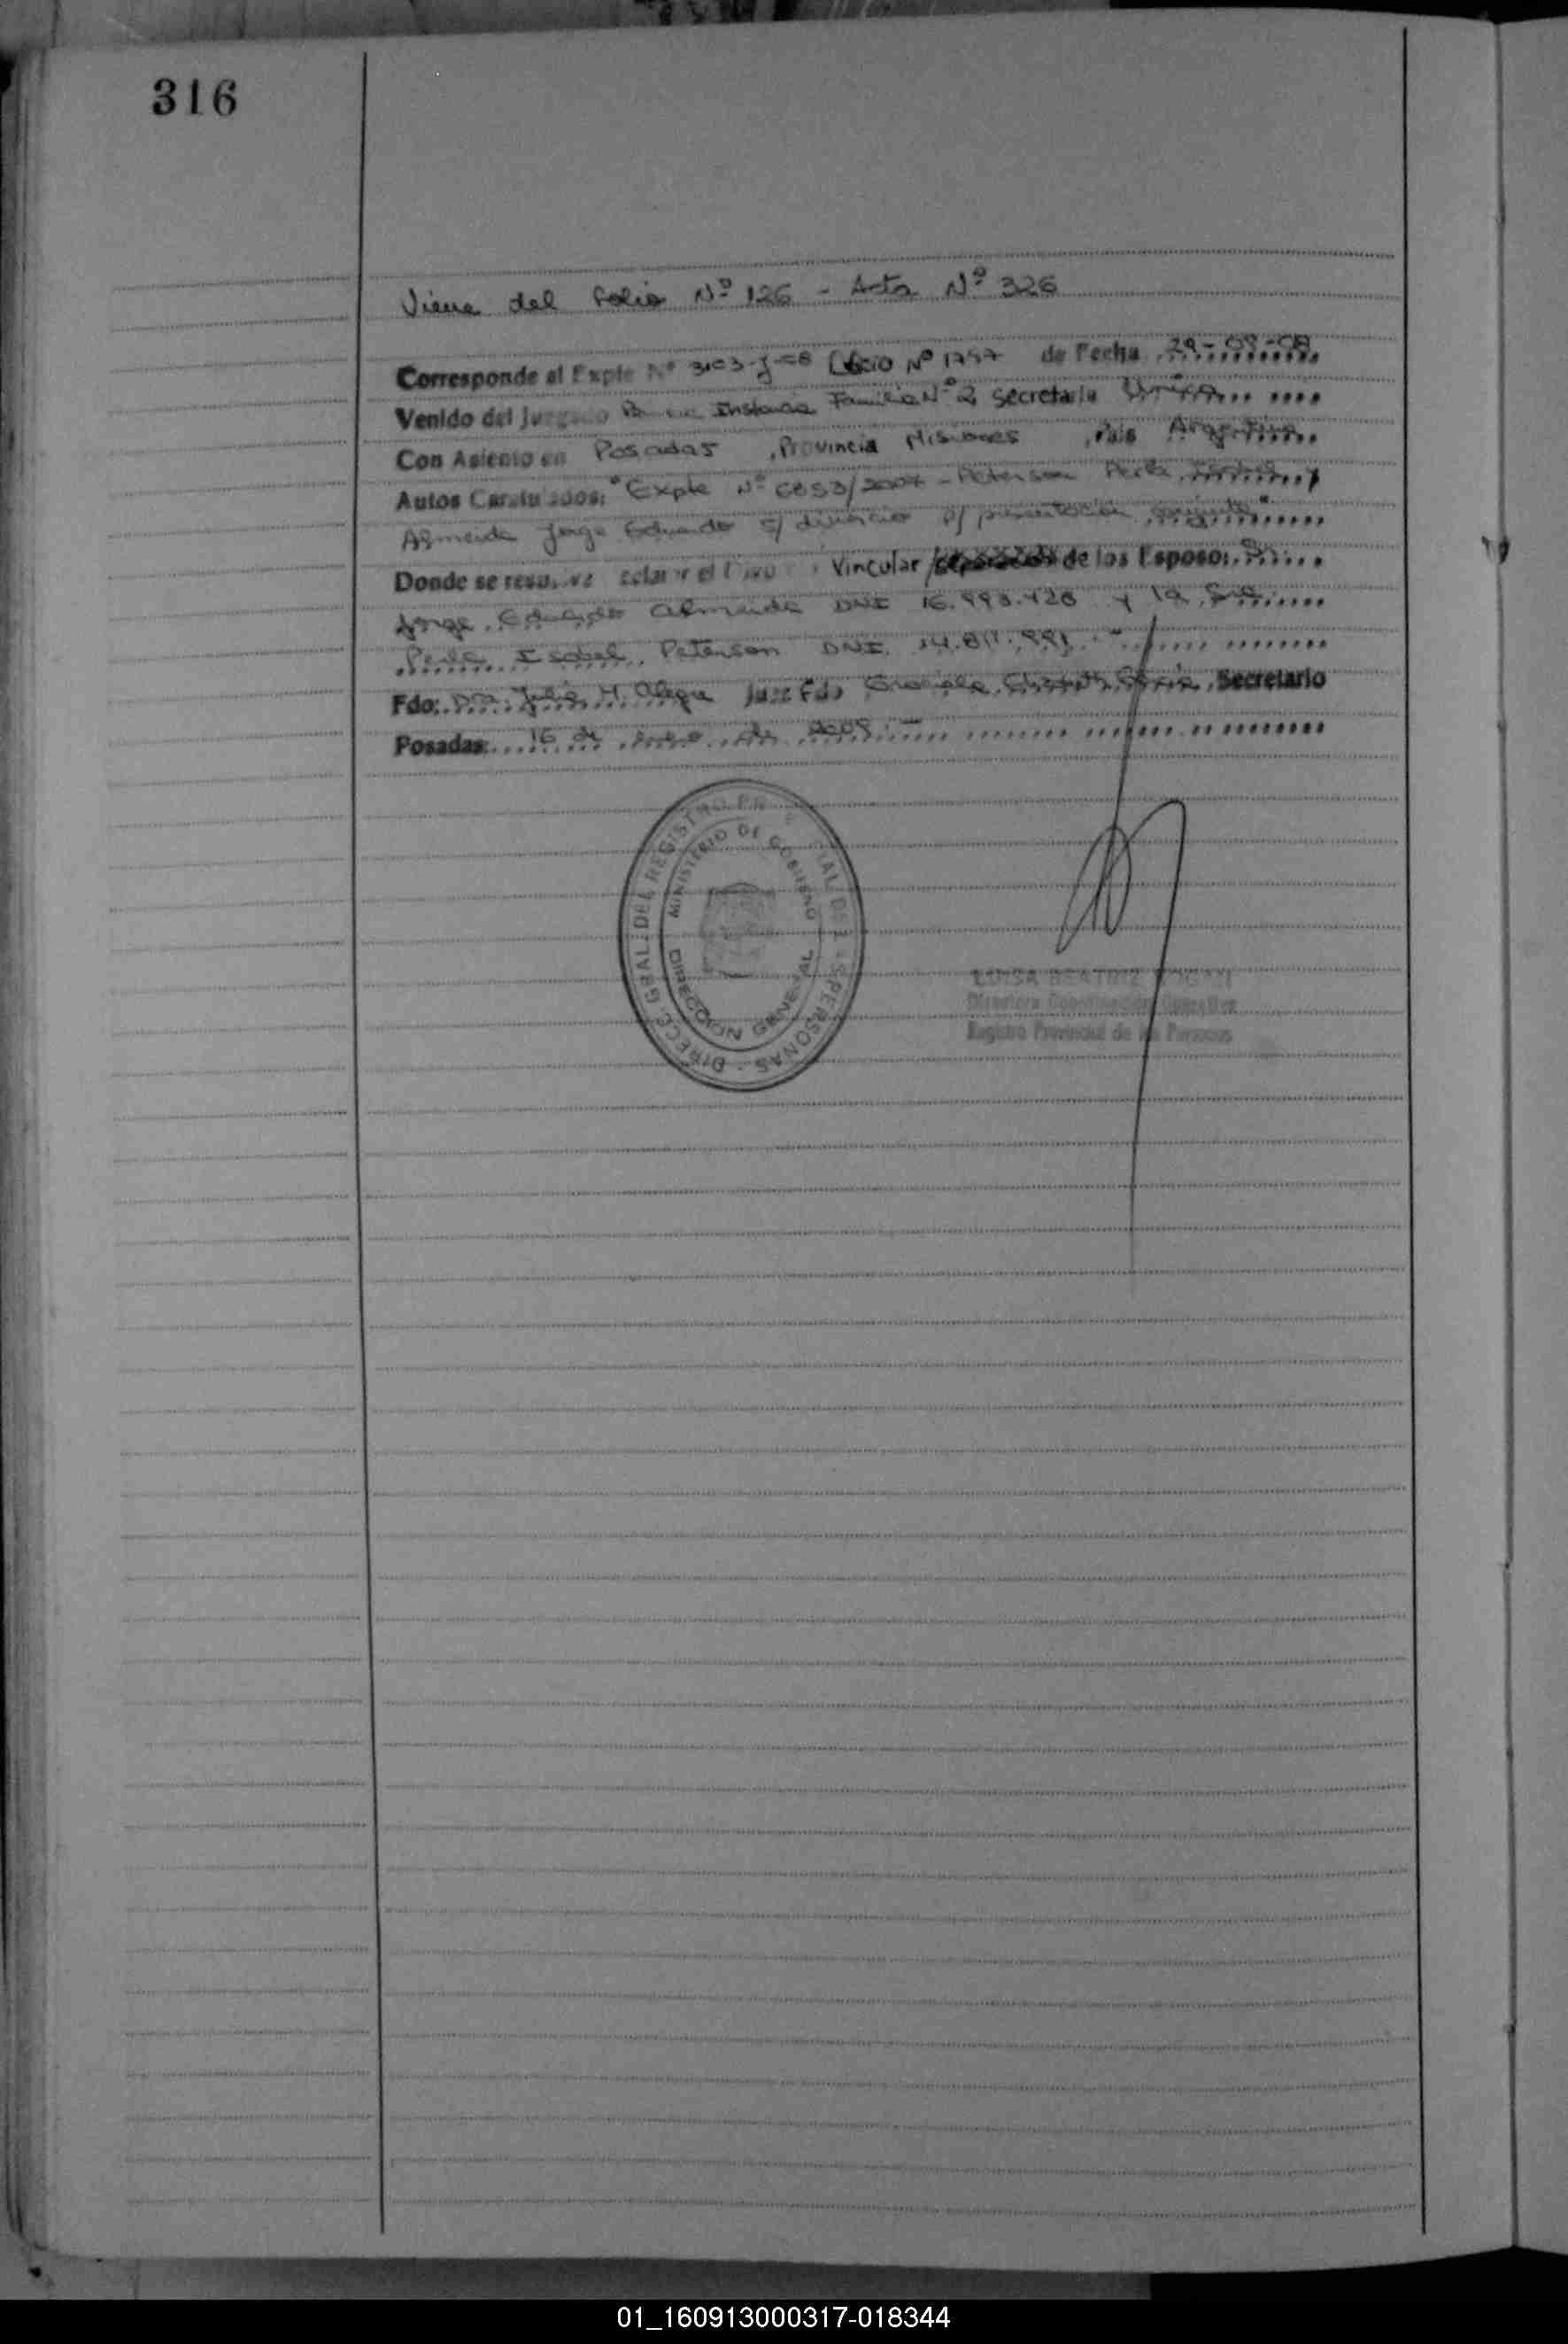 316
Viene del folio Nº 126 - Acta Nº 326
Corresponde al Expte Nº 3103-J-08 Oficio Nº 1757 de Fecha 29-08-08
Venido del Juzgado Instancia Familia Nº 2 Secretaria Unica
Con Asiento en Posadas, Provincia Misiones, Pais Argentina
Autos Caratulados: "Expte Nº 6853/2007 - Petersen Perla Isabel y
Almeida Jorge Eduardo s/ divorcio p/ presentación conjunta"
Donde se resuelve Vincular de los Esposo: Sr.
Jorge Eduardo Almeida DNI 16. y la Sra
Perla Isabel Petersen DNI 14.
Fdo: Dra. Julia H. Alegre Juez Fdo Graciela Secretario
Posadas: 16 de enero de 2009.-
DIRECC. GRAL. DEL REGISTRO PERSONAS
MINISTERIO DE GOBIERNO
DIRECCION GENERAL
LUISA BEATRIZ
Directora Coordinacion Operativa
Registro Provincial de las Personas
01_160913000317-018344